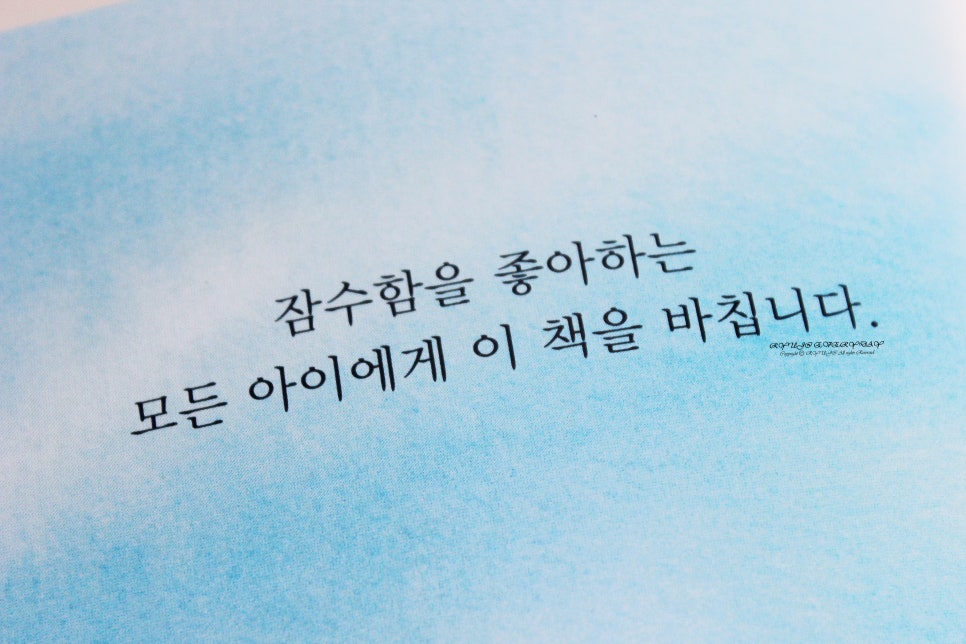 잠수함을 좋아하는
모든 아이에게 이 책을 바칩니다.
Copyright ⓒ RYUJS All rights Reserved